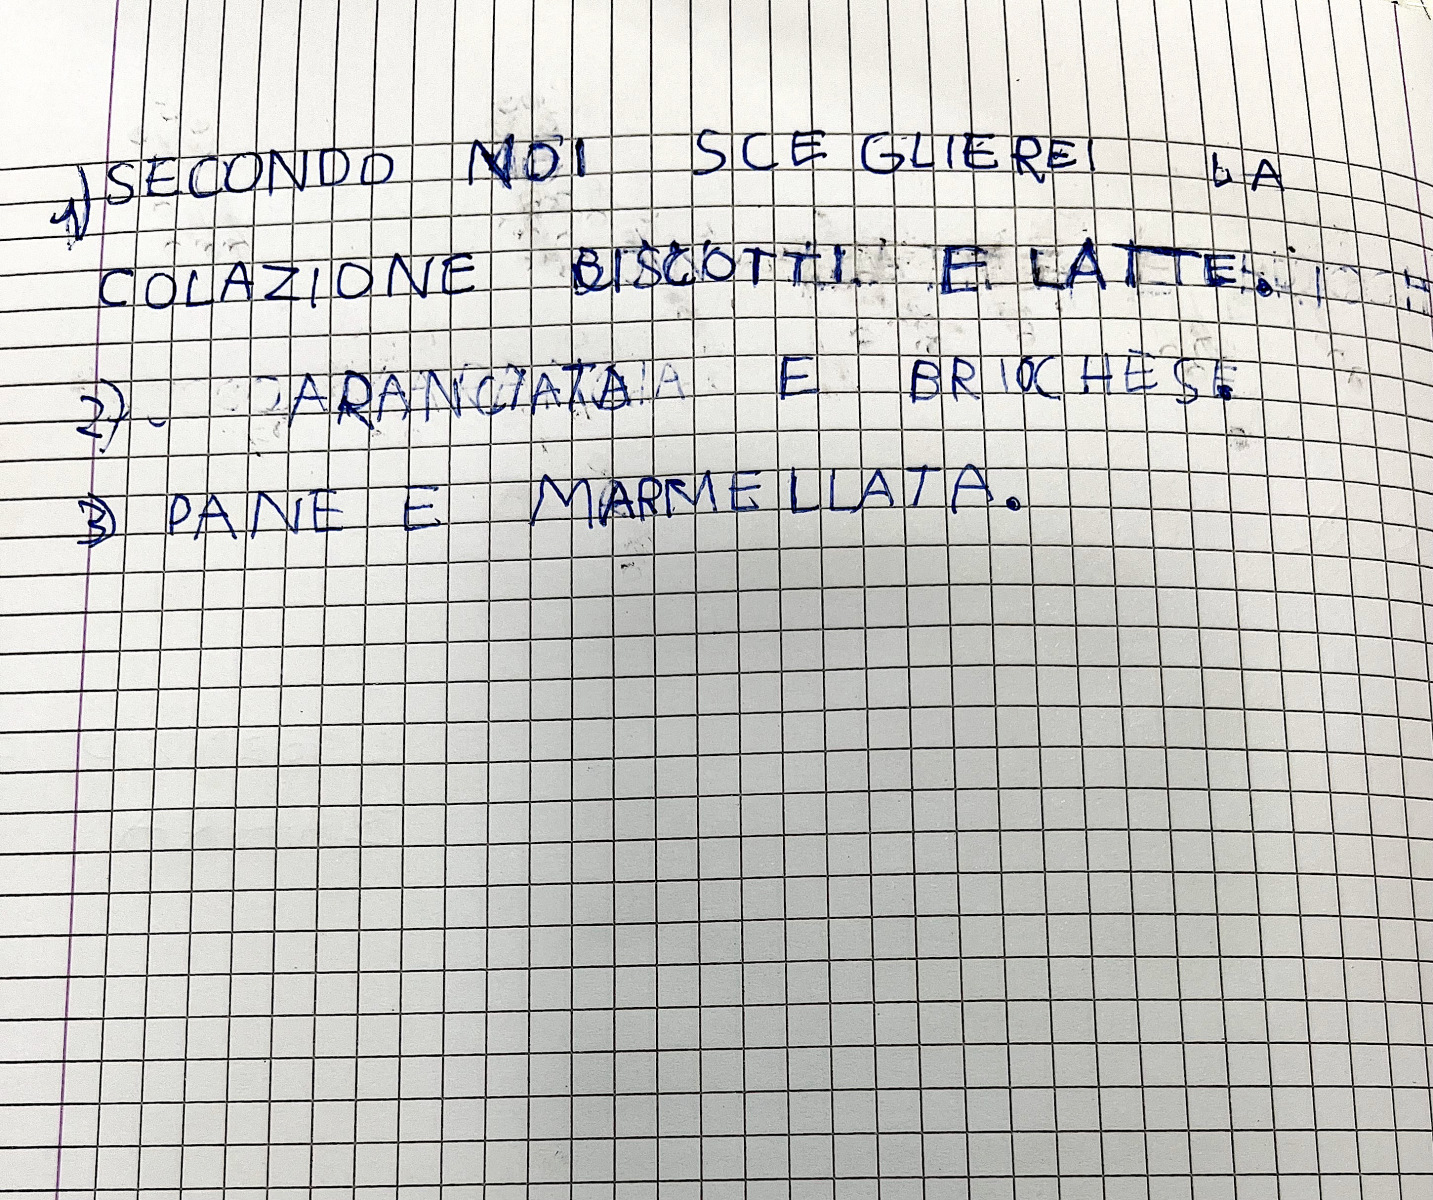 1) SECONDO NOI SCEGLIEREI LA
COLAZIONE BISCOTTI E LATTE.
2) ARANCIATA E BRIOCHES.
3) PANE E MARMELLATA.